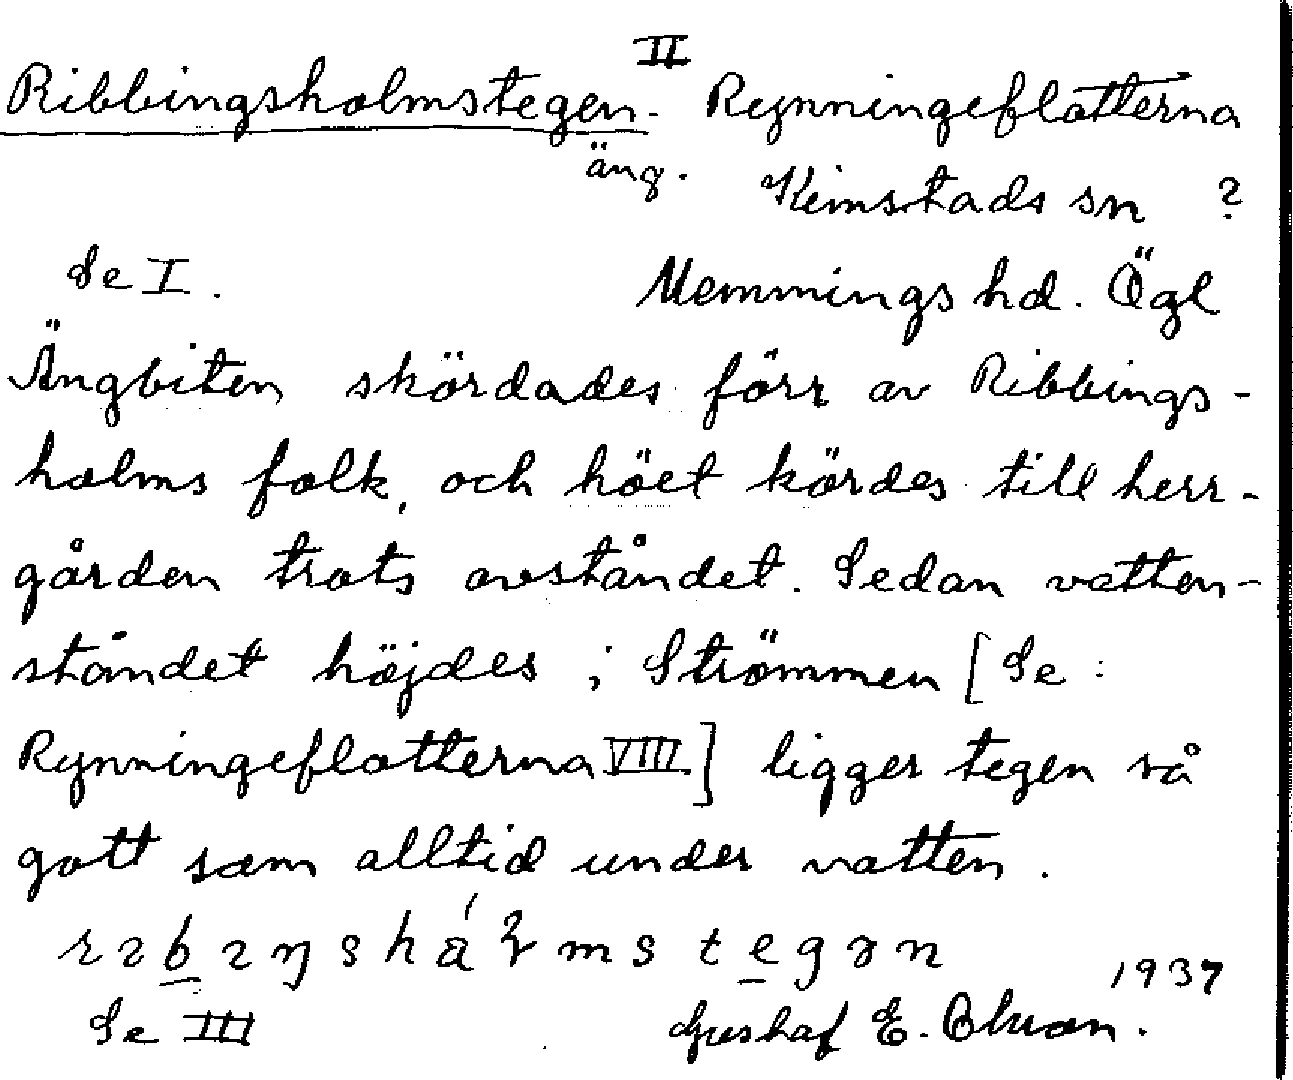 II
Ribbingsholmstegen. Rynningeflatterna
äng. Kimstads sn ?
Se I. Memmings hd. Ögl
Ängbiten skördades förr av Ribbings-
holms folk, och höet kördes till herr-
gården trots avståndet. Sedan vatten-
ståndet höjdes i Strömmen [Se:
Rynningeflatterna VIII] ligger tegen så
gott som alltid under vatten.
1937
Se III Gustaf E.